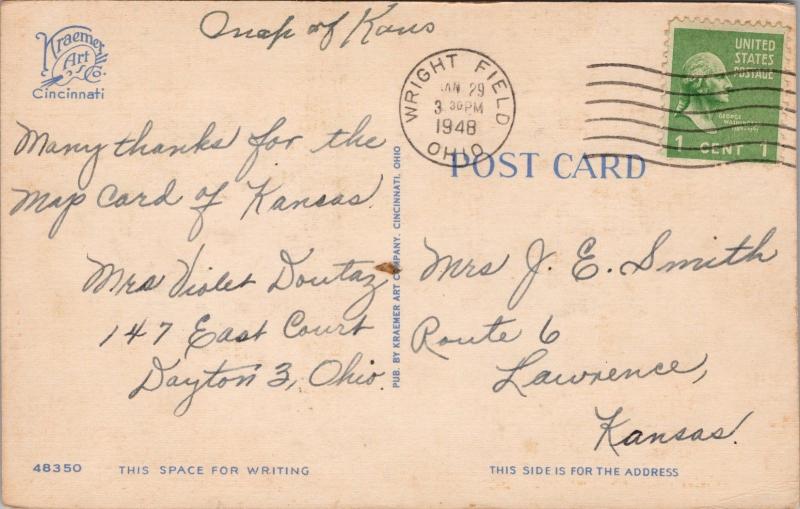 Kraemer
Art
Co.
Cincinnati
Map of Kans
WRIGHT FIELD
JAN 29
3 30 PM
1948
OHIO
UNITED
STATES
POSTAGE
GEORGE
WASHINGTON
1 CENT 1
POST CARD
Many thanks for the
Map Card of Kansas.
Mrs Violet Doutaz
147 East Court
Dayton 3, Ohio.
PUB. BY KRAEMER ART COMPANY, CINCINNATI, OHIO
Mrs J. E. Smith
Route 6
Lawrence,
Kansas.
48350
THIS SPACE FOR WRITING
THIS SIDE IS FOR THE ADDRESS